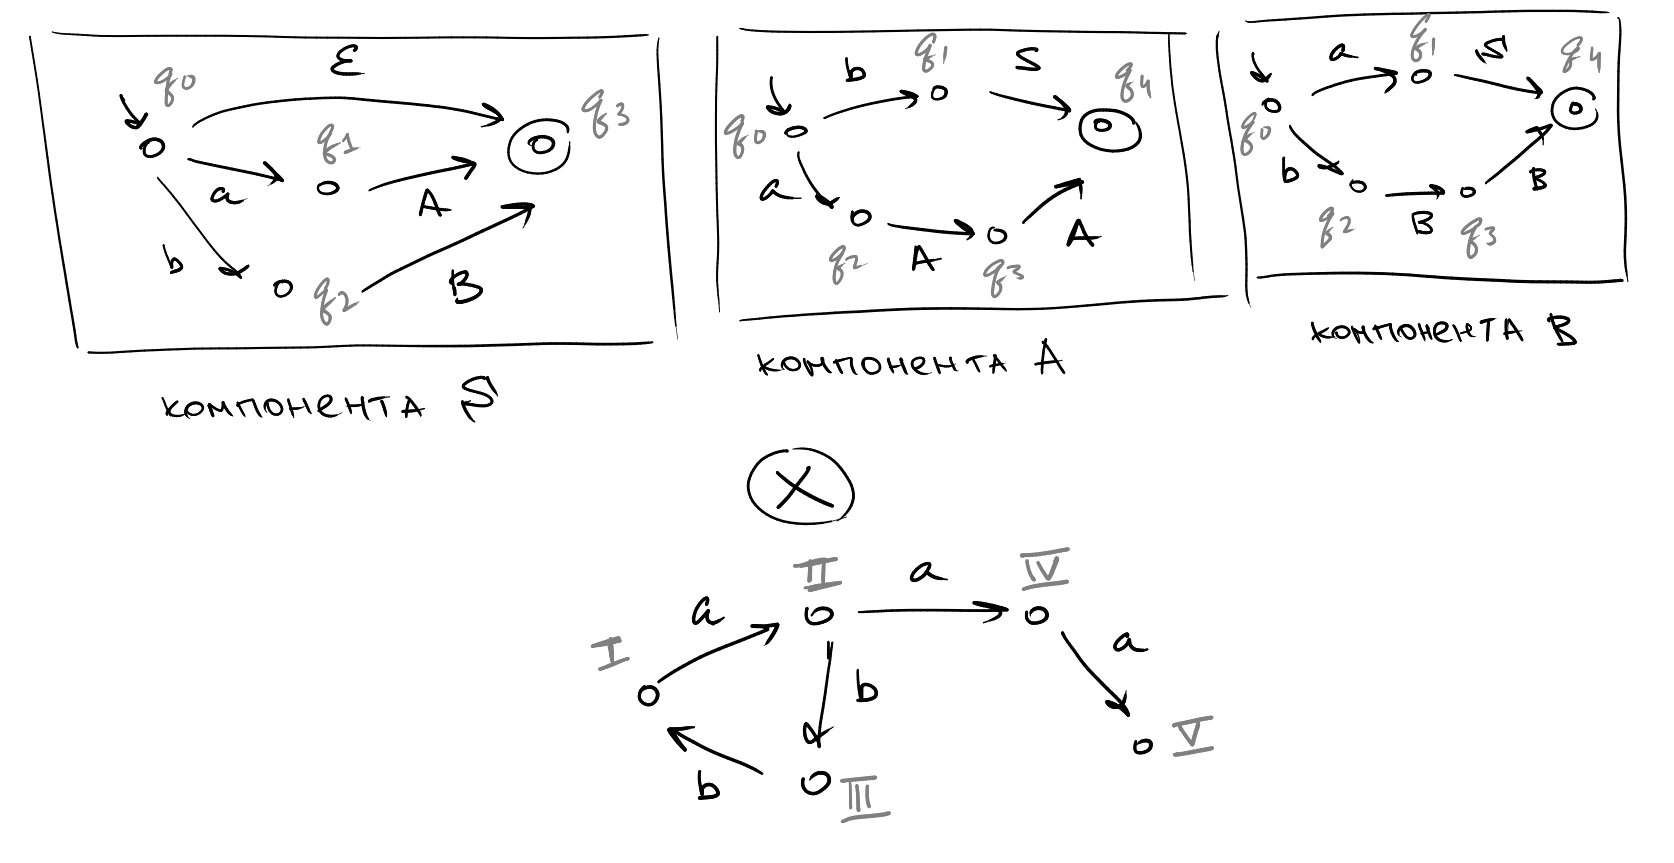 ε
q0
q3
q1
a
A
b
q2
B
компонента S
q1
b
S
q4
q0
a
q2
A
q3
A
компонента A
q1
a
S
q4
q0
b
q2
B
q3
B
компонента B
X
II
a
IV
a
I
a
b
V
b
III